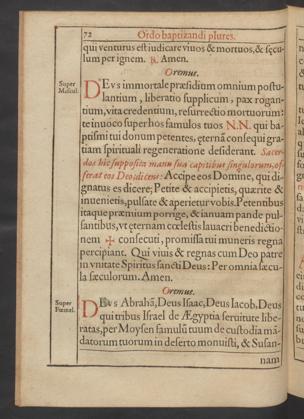 72 Ordo baptizandi plures.
qui venturus est iudicare viuos & mortuos, & sęcu-
lum per ignem. ℟. Amen.
Oremus.
Super Mascul.
DEVS immortale præsidium omnium postu-
lantium, liberatio supplicum, pax rogan-
tium, vita credentium, resurrectio mortuorum:
te inuoco super hos famulos tuos N.N. qui ba-
ptismi tui donum petentes, ęternā consequi gra-
tiam spirituali regeneratione desiderant. Sacer-
dos hic supposita manu sua capitibus singulorum, of-
ferat eos Deo dicens: Accipe eos Domine, qui di-
gnatus es dicere; Petite & accipietis, quærite &
inuenietis, pulsate & aperietur vobis. Petentibus
itaque præmium porrige, & ianuam pande pul-
santibus, vt ęternam cœlestis lauacri benedictio-
nem ✠ consecuti, promissa tui muneris regna
percipiant. Qui viuis & regnas cum Deo patre
in vnitate Spiritus sancti Deus: Per omnia sæcu-
la sæculorum. Amen.
Oremus.
Super Fœmel.
DEVS Abrahā, Deus Isaac, Deus Iacob, Deus
qui tribus Israel de Ægyptia seruitute libe-
ratas, per Moysen famulū tuum de custodia mā-
datorum tuorum in deserto monuisti, & Susan-
nam